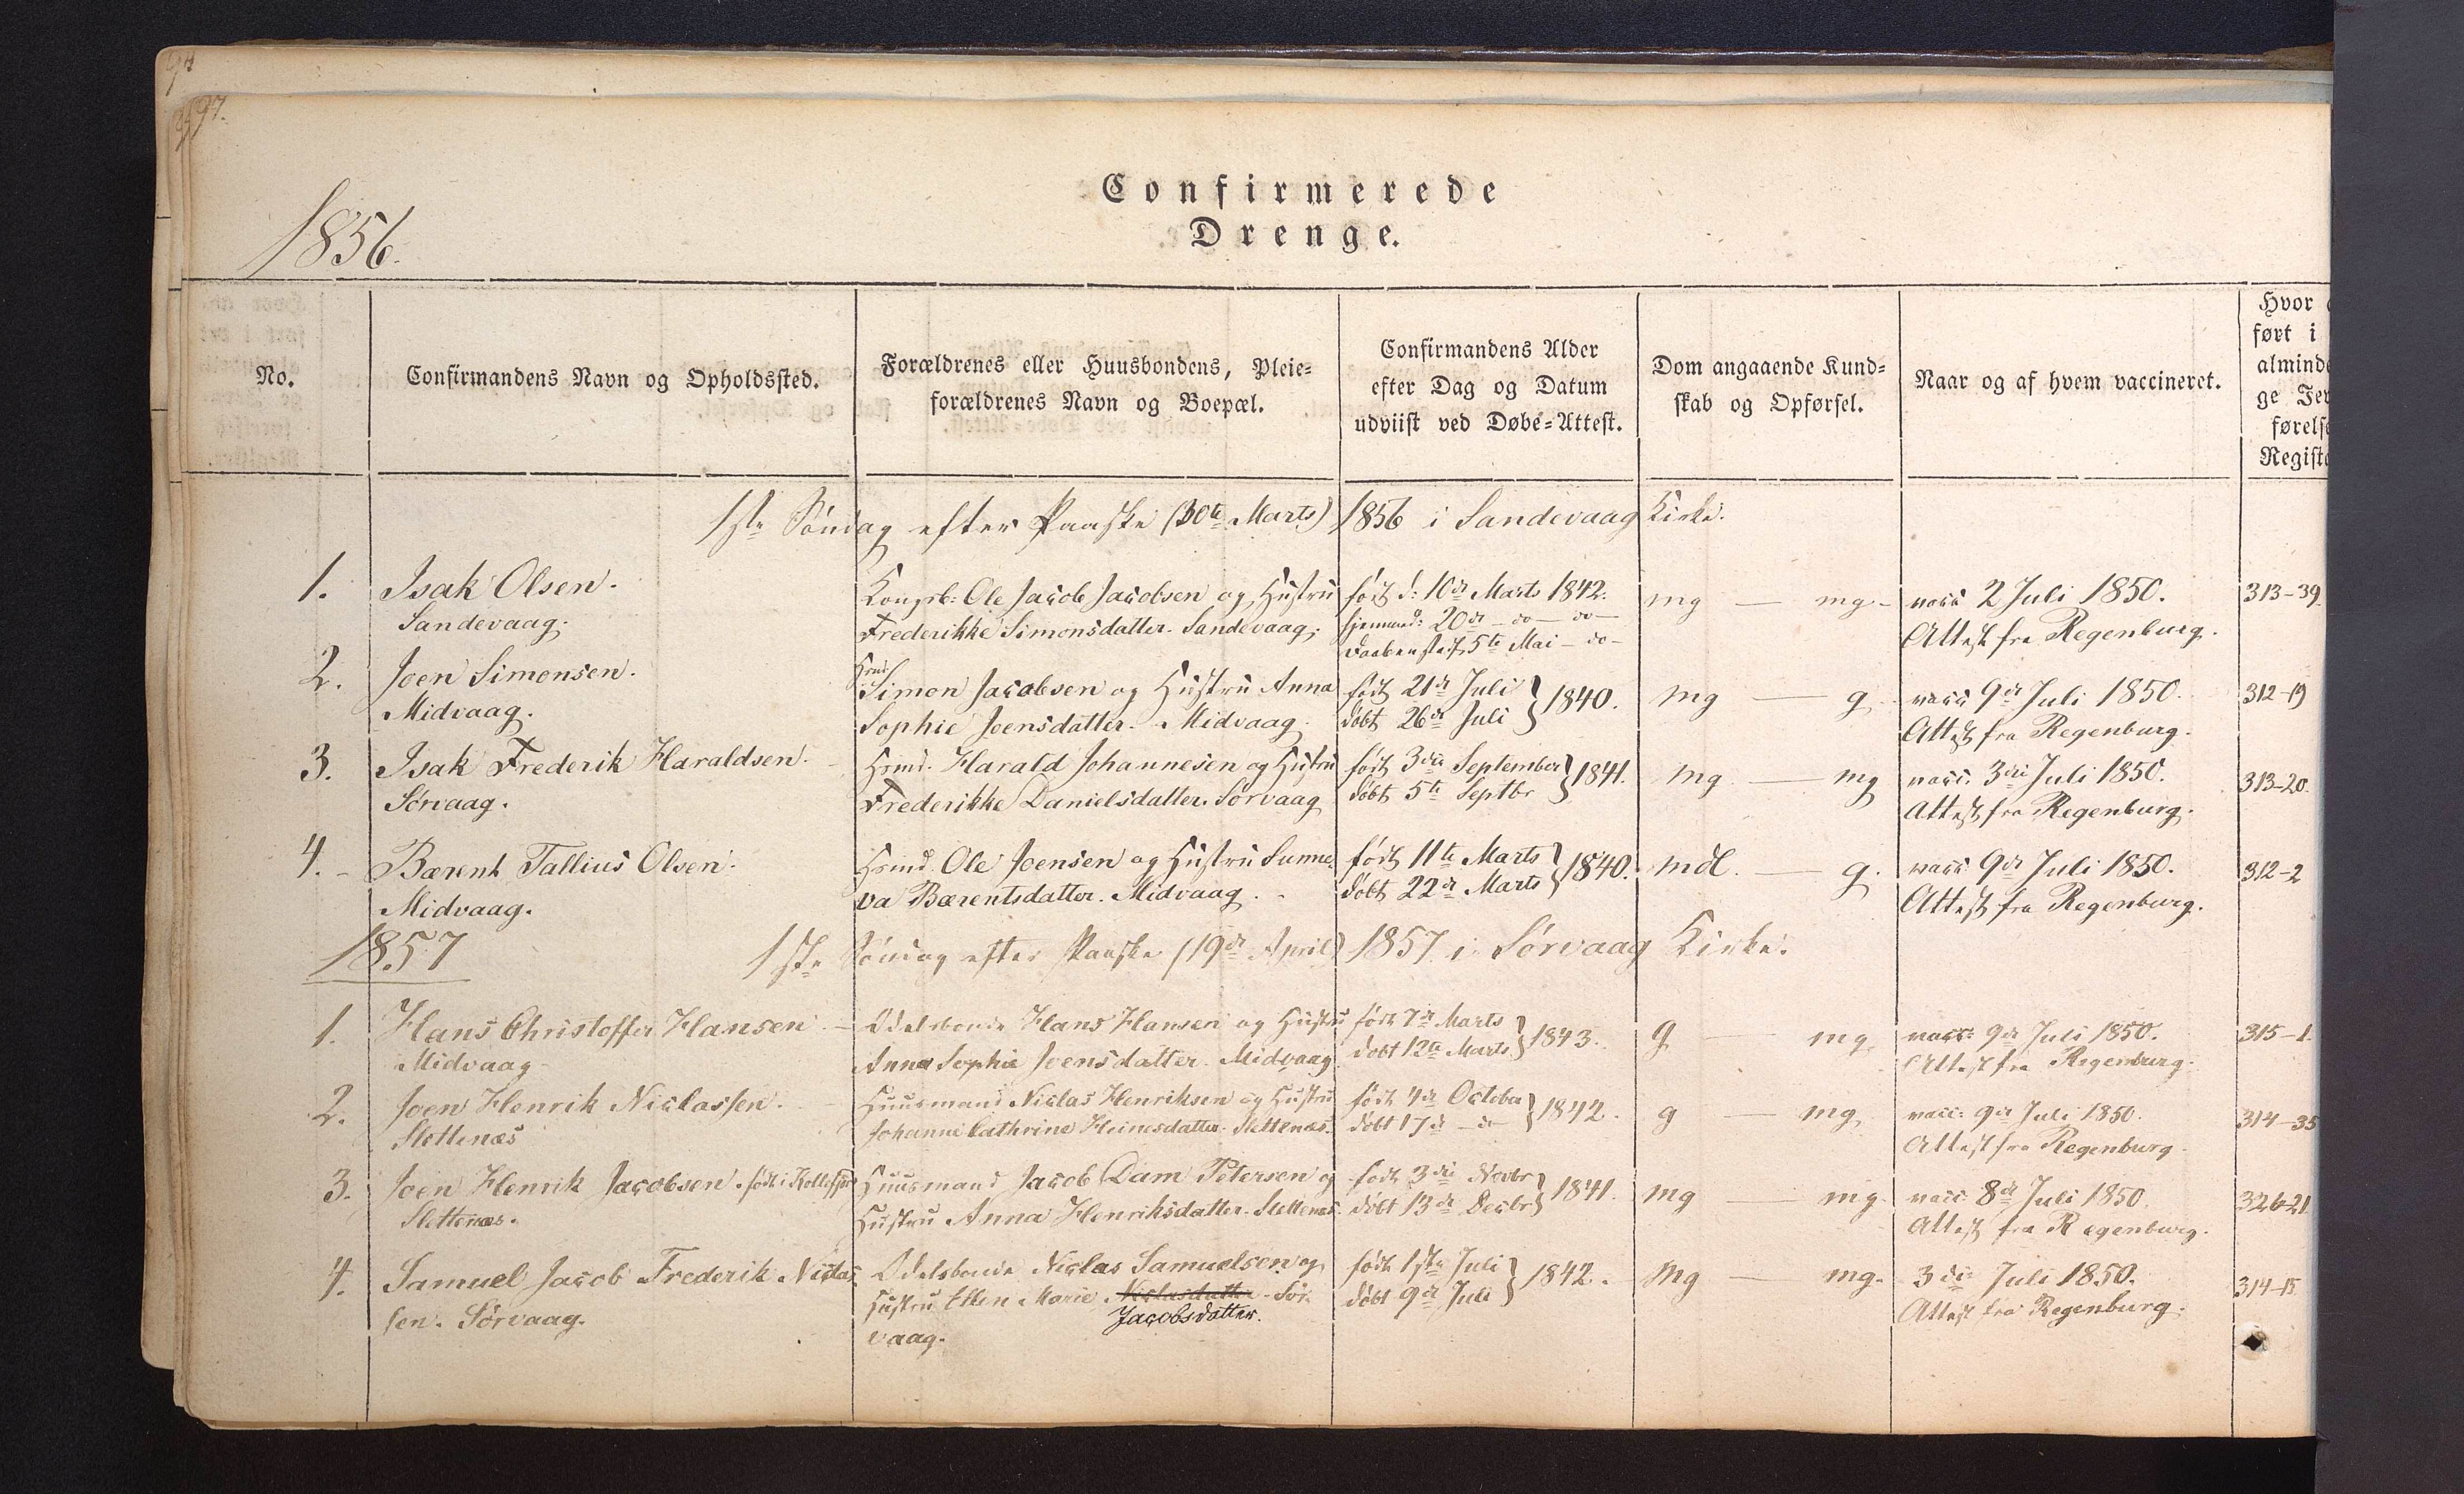 97.
1856.
Confirmerede
Drenge.
No.
Confirmandens Navn og Opholdssted.
Forældrenes eller Huusbondens, Pleie=
forældrenes Navn og Boepæl.
Confirmandens Alder
efter Dag og Datum
udviist ved Døbe=Attest.
Dom angaaende Kund=
skab og Opførsel.
Naar og af hvem vaccineret.
Hvor
ført i
alminde
ge Jev
førelse
Registe
1ste Søndag efter Paaske (30te Marts) 1856 i Sandevaag Kirke.
1.
Isak Olsen.
Sandevaag.
Kongsb: Ole Jacob Jacobsen og Hustru
Frederikke Simonsdatter. Sandevaag.
født d: 10de Marts 1842.
hjemmed: 20de - do - do -
5te Mai - do -
mg — mg -
vacc 2 Juli 1850.
Attest fra Regenburg.
313-39.
2.
Joen Simonsen.
Midvaag.
Hsmd.
Simon Jacobsen og Hustru Anna
Sophie Joensdatter. Midvaag.
født 21de Juli
døbt 26de Juli } 1840.
mg — g.
vacc 9de Juli 1850.
Attest fra Regenburg.
312-19
3.
Isak Frederik Haraldsen.
Sørvaag.
Hsmd. Harald Johannesen og Hustru
Frederikke Danielsdatter. Sørvaag
født 3die September
døbt 5te Septbr } 1841.
mg — mg
vacc. 3die Juli 1850.
Attest fra Regenburg.
313-20.
4.
Bærent Tallius Olsen.
Midvaag.
Hsmd. Ole Joensen og Hustru Sunne
va Bærentsdatter. Midvaag.
født 11te Marts
døbt 22de Marts } 1840.
mdl. — g.
vacc 9de Juli 1850.
Attest fra Regenburg.
312-2
1857
1ste Søndag efter Paaske (19de April) 1857 i Sørvaag Kirke.
1.
Hans Christoffer Hansen
Midvaag
Odelsbonde Hans Hansen og Hustru
Anna Sophie Joensdatter. Midvaag
født 7de Marts
døbt 12te Marts } 1843.
g — mg.
vacc: 9de Juli 1850.
Attest fra Regenburg.
315-1.
2.
Joen Henrik Niclassen.
Slettenæs
Huusmand Niclas Henriksen og Hustru
Johanne Cathrine Heinesdatter. Slettenæs.
født 4de October
døbt 17de - do - } 1842.
g — mg.
vacc: 9de Juli 1850.
Attest fra Regenburg.
314-35
3.
Joen Henrik Jacobsen. født i
Slettenæs.
Huusmand Jacob Dam Petersen og
Hustru Anna Henriksdatter. Slettenæs.
født 3die Novbr
døbt 13de Decbr } 1841.
mg — mg.
vacc 8de Juli 1850.
Attest fra Regenburg.
326-21.
4.
Samuel Jacob Frederik Niclas
sen. Sørvaag.
Odelsbonde Niclas Samuelsen og
Hustru Ellen Marie Niclasdatter. Sør-
Jacobsdatter.
vaag.
født 1ste Juli
døbt 9de Juli } 1842.
mg — mg.
3die Juli 1850.
Attest fra Regenburg.
314-15